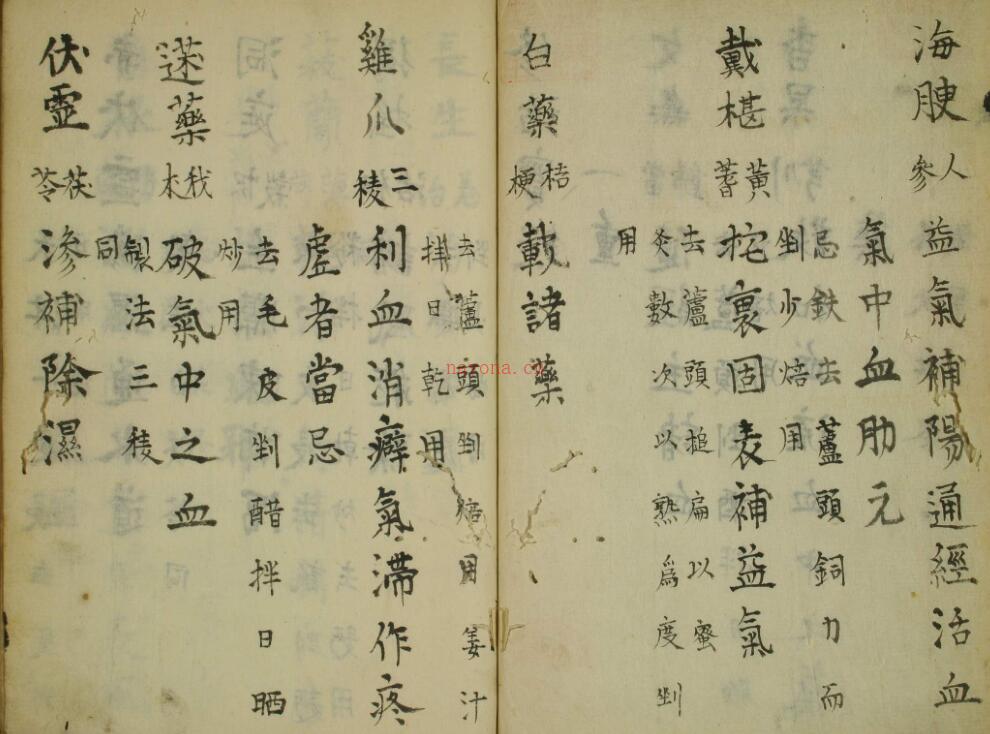 海腴人參益氣補陽通經活血
氣中血肋元
忌鉄去蘆頭銅力而
剉少焙用
戴椹黃蓍拕裏固表補益氣
去蘆頭搥扁以蜜
灸數次以熟爲度剉
用
白藥桔梗載諸藥
去蘆頭剉焙用姜汁
拌日乾用
雞爪三稜利血消癖氣滯作疼
虛者當忌
去毛皮剉醋拌日晒
炒用
藥我朮破氣中之血
製法三稜
同
伏靈茯苓滲補除濕